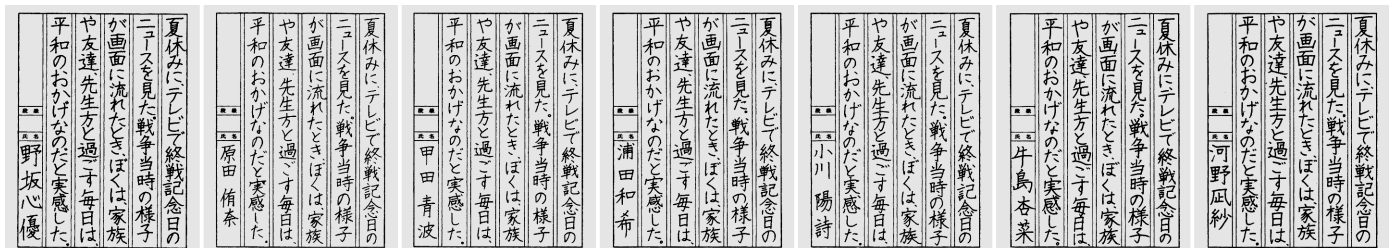 夏休みに、テレビで終戦記念日の
ニュースを見た。戦争当時の様子
が画面に流れたとき、ぼくは、家族
や友達、先生方と過ごす毎日は、
平和のおかげなのだと実感した。
氏名
野坂心優
夏休みに、テレビで終戦記念日の
ニュースを見た。戦争当時の様子
が画面に流れたとき、ぼくは、家族
や友達、先生方と過ごす毎日は、
平和のおかげなのだと実感した。
氏名
原田侑奈
夏休みに、テレビで終戦記念日の
ニュースを見た。戦争当時の様子
が画面に流れたとき、ぼくは、家族
や友達、先生方と過ごす毎日は、
平和のおかげなのだと実感した。
氏名
甲田青波
夏休みに、テレビで終戦記念日の
ニュースを見た。戦争当時の様子
が画面に流れたとき、ぼくは、家族
や友達、先生方と過ごす毎日は、
平和のおかげなのだと実感した。
氏名
浦田和希
夏休みに、テレビで終戦記念日の
ニュースを見た。戦争当時の様子
が画面に流れたとき、ぼくは、家族
や友達、先生方と過ごす毎日は、
平和のおかげなのだと実感した。
氏名
小川陽詩
夏休みに、テレビで終戦記念日の
ニュースを見た。戦争当時の様子
が画面に流れたとき、ぼくは、家族
や友達、先生方と過ごす毎日は、
平和のおかげなのだと実感した。
氏名
牛島杏菜
夏休みに、テレビで終戦記念日の
ニュースを見た。戦争当時の様子
が画面に流れたとき、ぼくは、家族
や友達、先生方と過ごす毎日は、
平和のおかげなのだと実感した。
氏名
河野凪紗